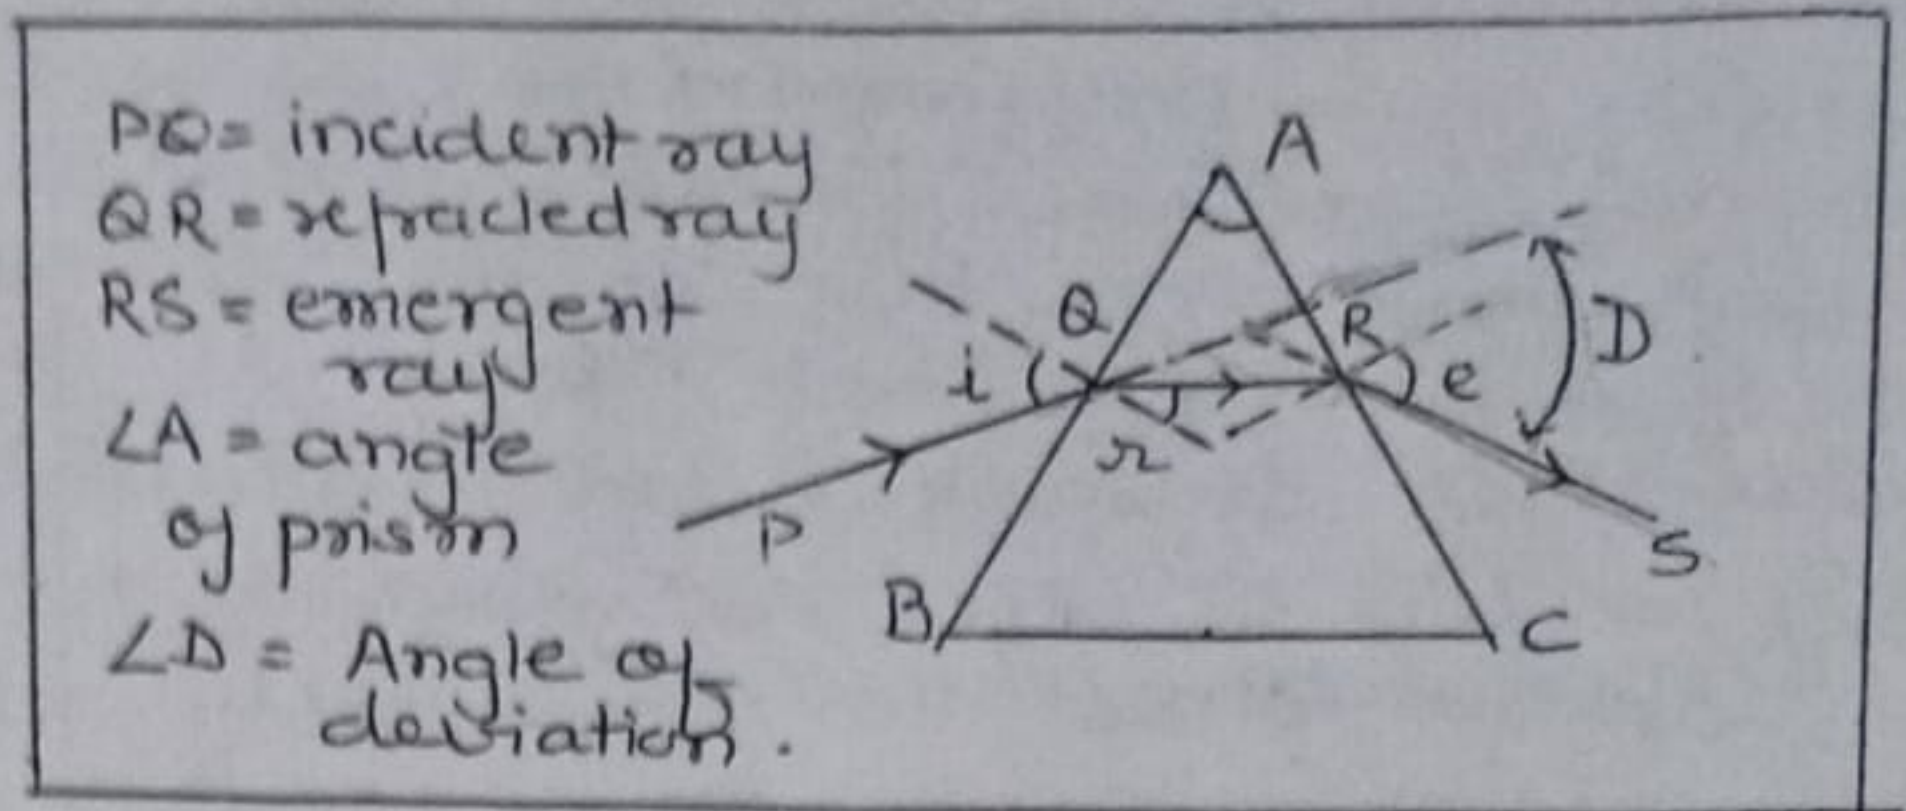 PQ = incident ray
QR = refracted ray
RS = emergent
ray
∠A = angle
of prism
∠D = Angle of
deviation.
A
Q
R
i
e
D
r
P
S
B
C